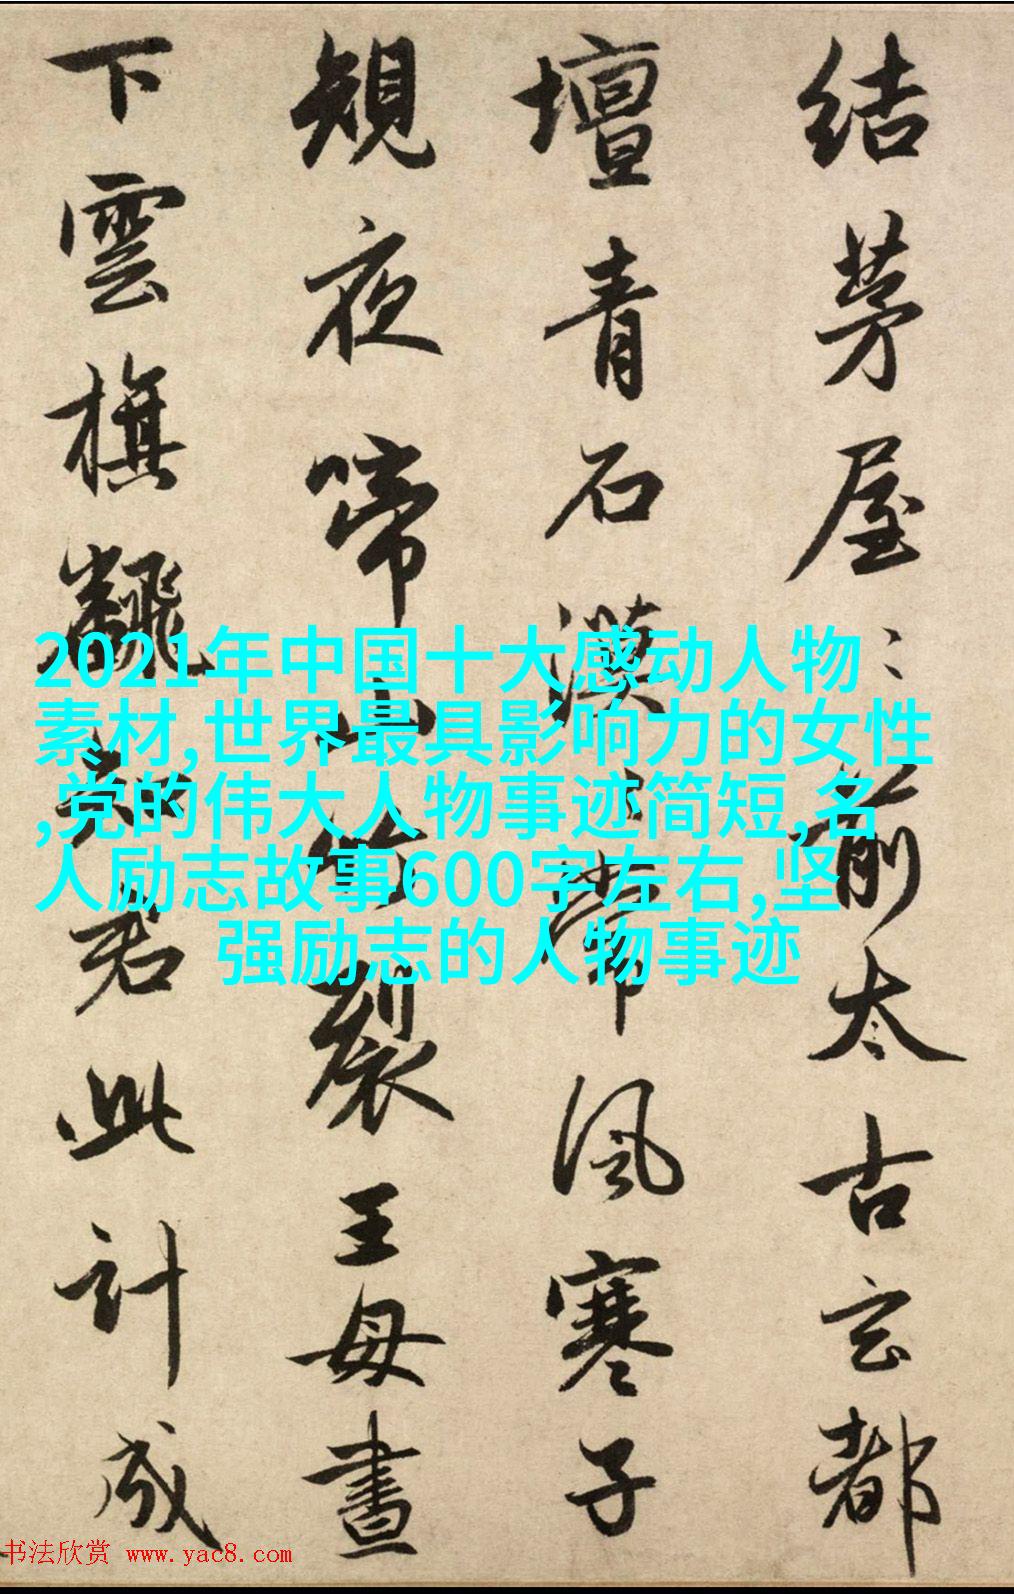 结茅屋:前太古玄都
壇青石漠:常風寒子
規夜啼山竹裂王母晝
下雲旗翻知君此计成
2021年中国十大感动人物
素材,世界最具影响力的女性
,党的伟大人物事迹简短,名
人励志故事600字左右,坚
强励志的人物事迹
书法欣赏 www.yac8.com